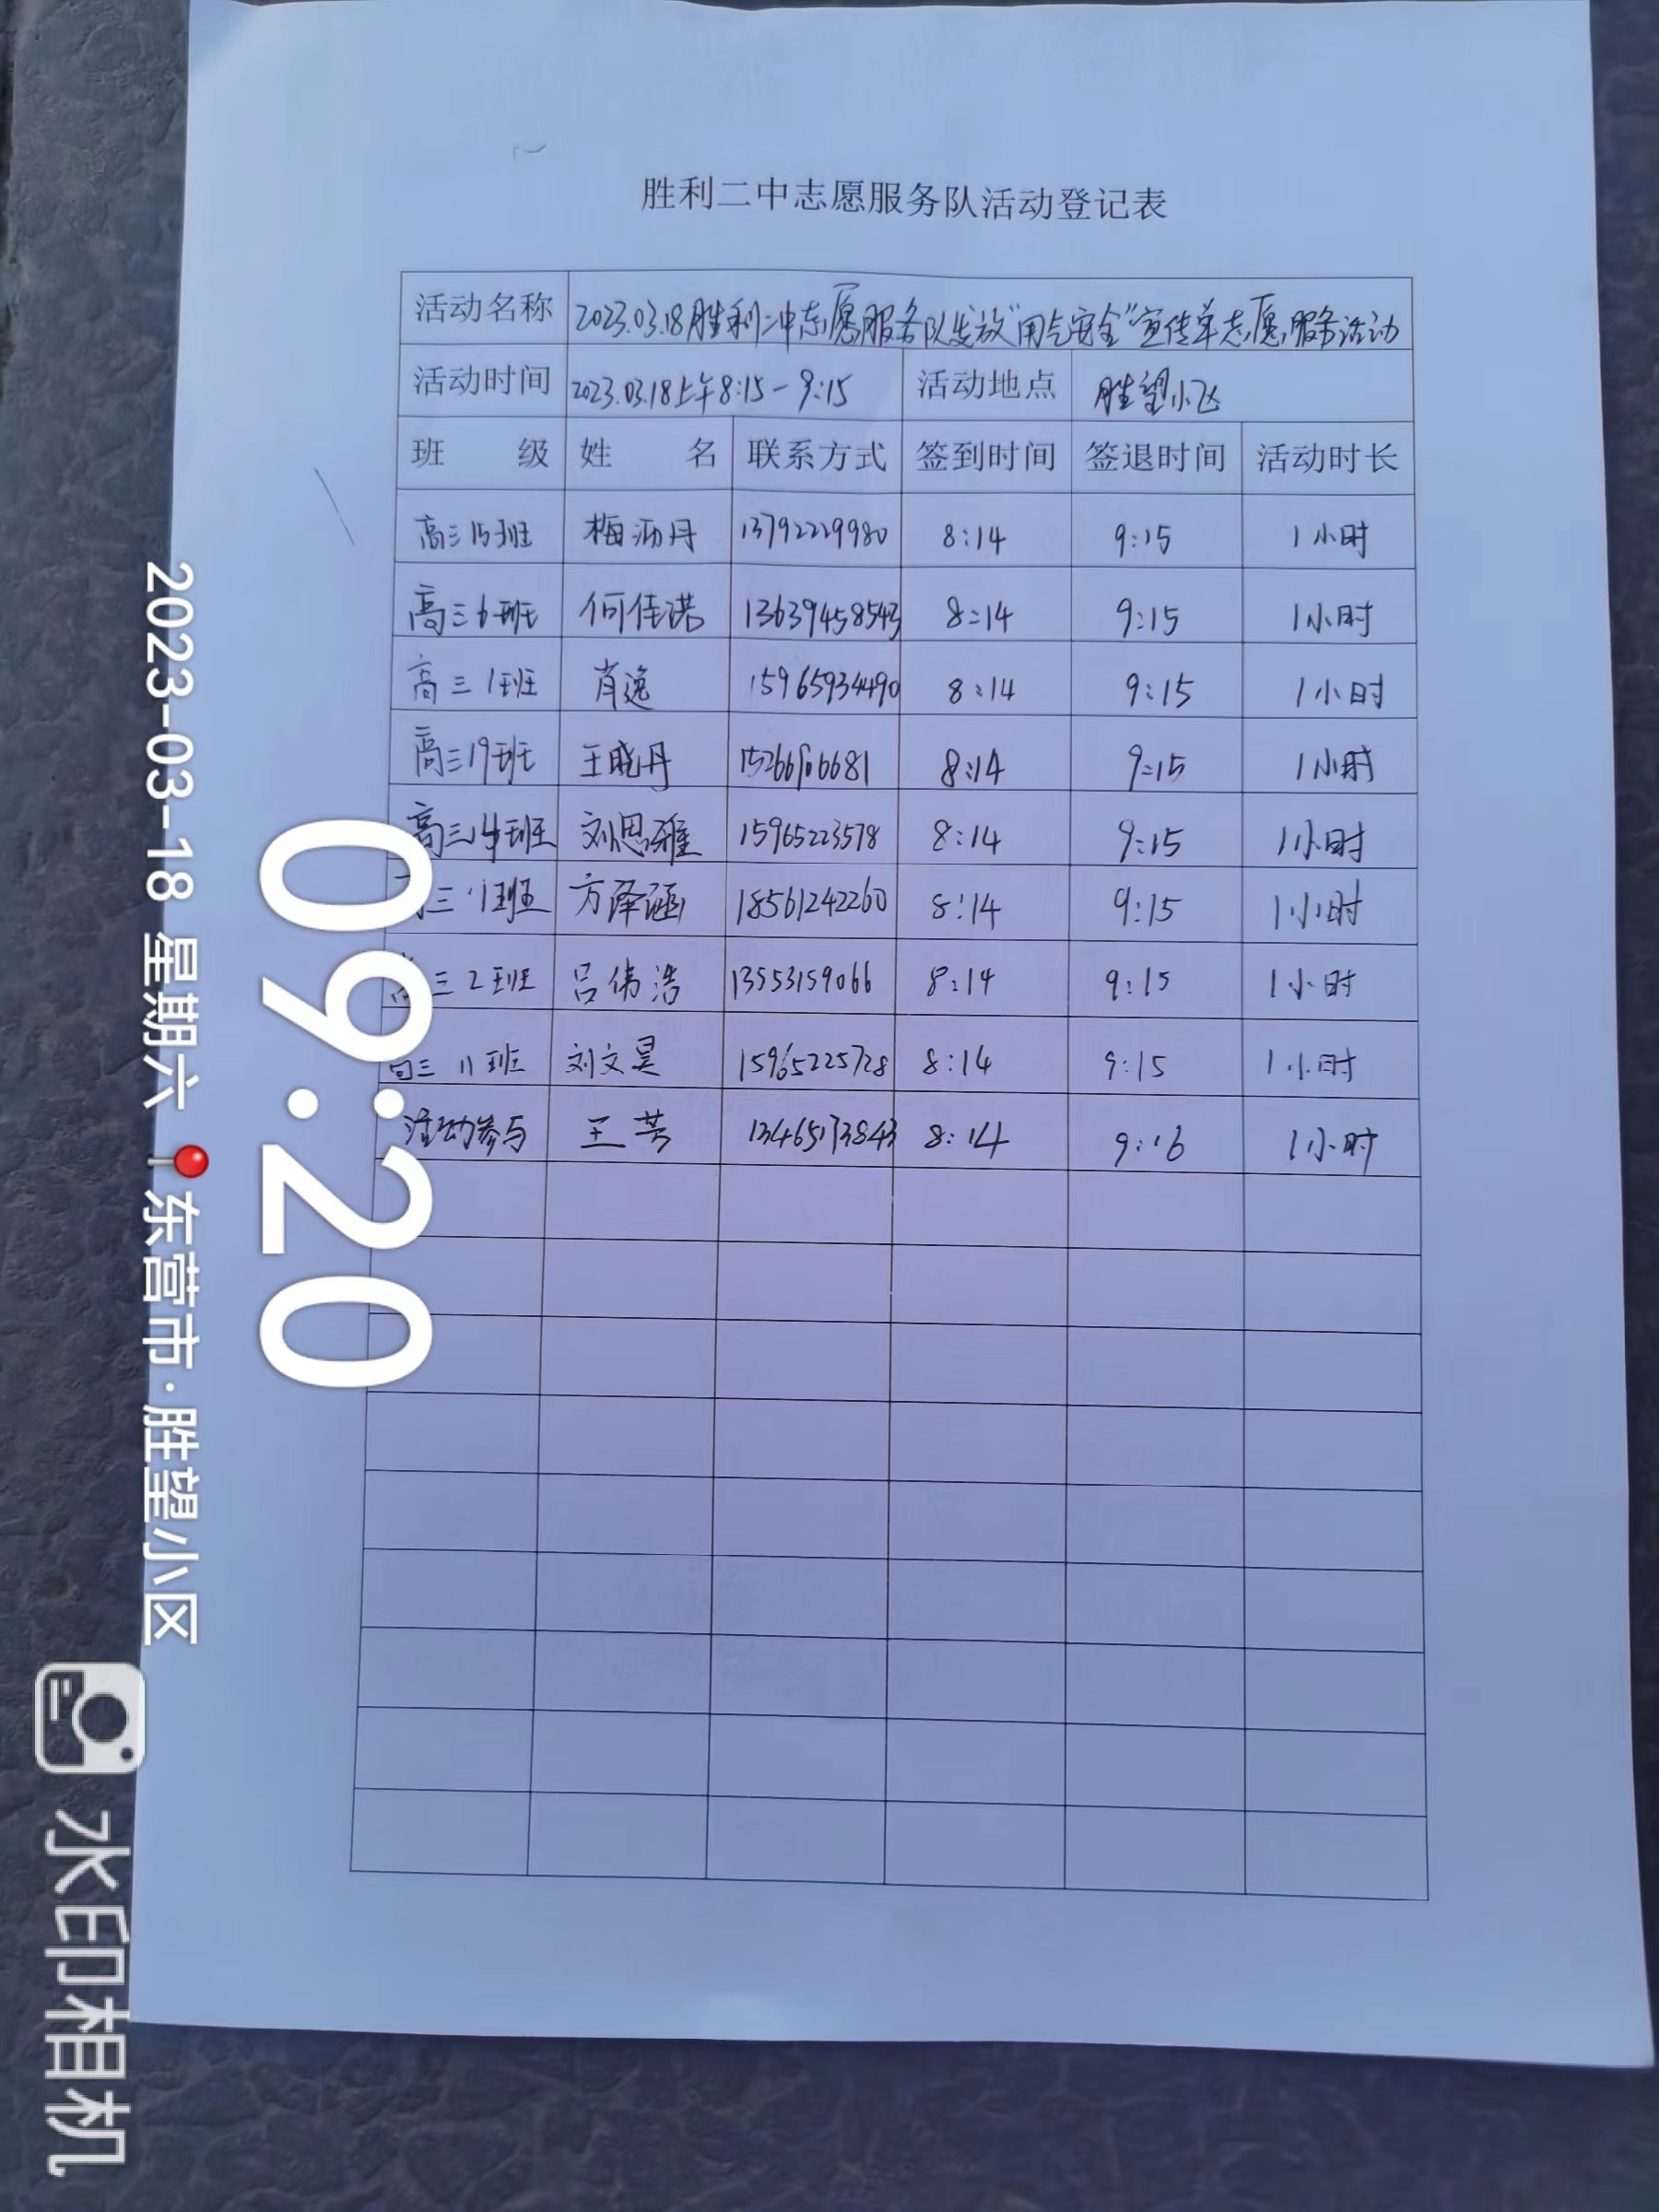 胜利二中志愿服务队活动登记表
活动名称 2023.03.18胜利二中志愿服务队发放"用气安全"宣传单志愿服务活动
活动时间 2023.03.18上午8:15-9:15 活动地点 胜望小区
班 级 姓 名 联系方式 签到时间 签退时间 活动时长
高三15班 梅沥丹 13792229980 8:14 9:15 1小时
高三6班 何佳诺 13639458543 8:14 9:15 1小时
高三1班 肖逸 15965934490 8:14 9:15 1小时
高三19班 王晓丹 8:14 9:15 1小时
高三14班 刘思雅 15965223578 8:14 9:15 1小时
三11班 方泽涵 18561242260 8:14 9:15 1小时
高三2班 吕伟浩 13553159066 8:14 9:15 1小时
高三11班 刘文昊 15965225728 8:14 9:15 1小时
活动参与 王芳 13465173843 8:14 9:16 1小时
09:20
2023-03-18 星期六 东营市·胜望小区
水印相机